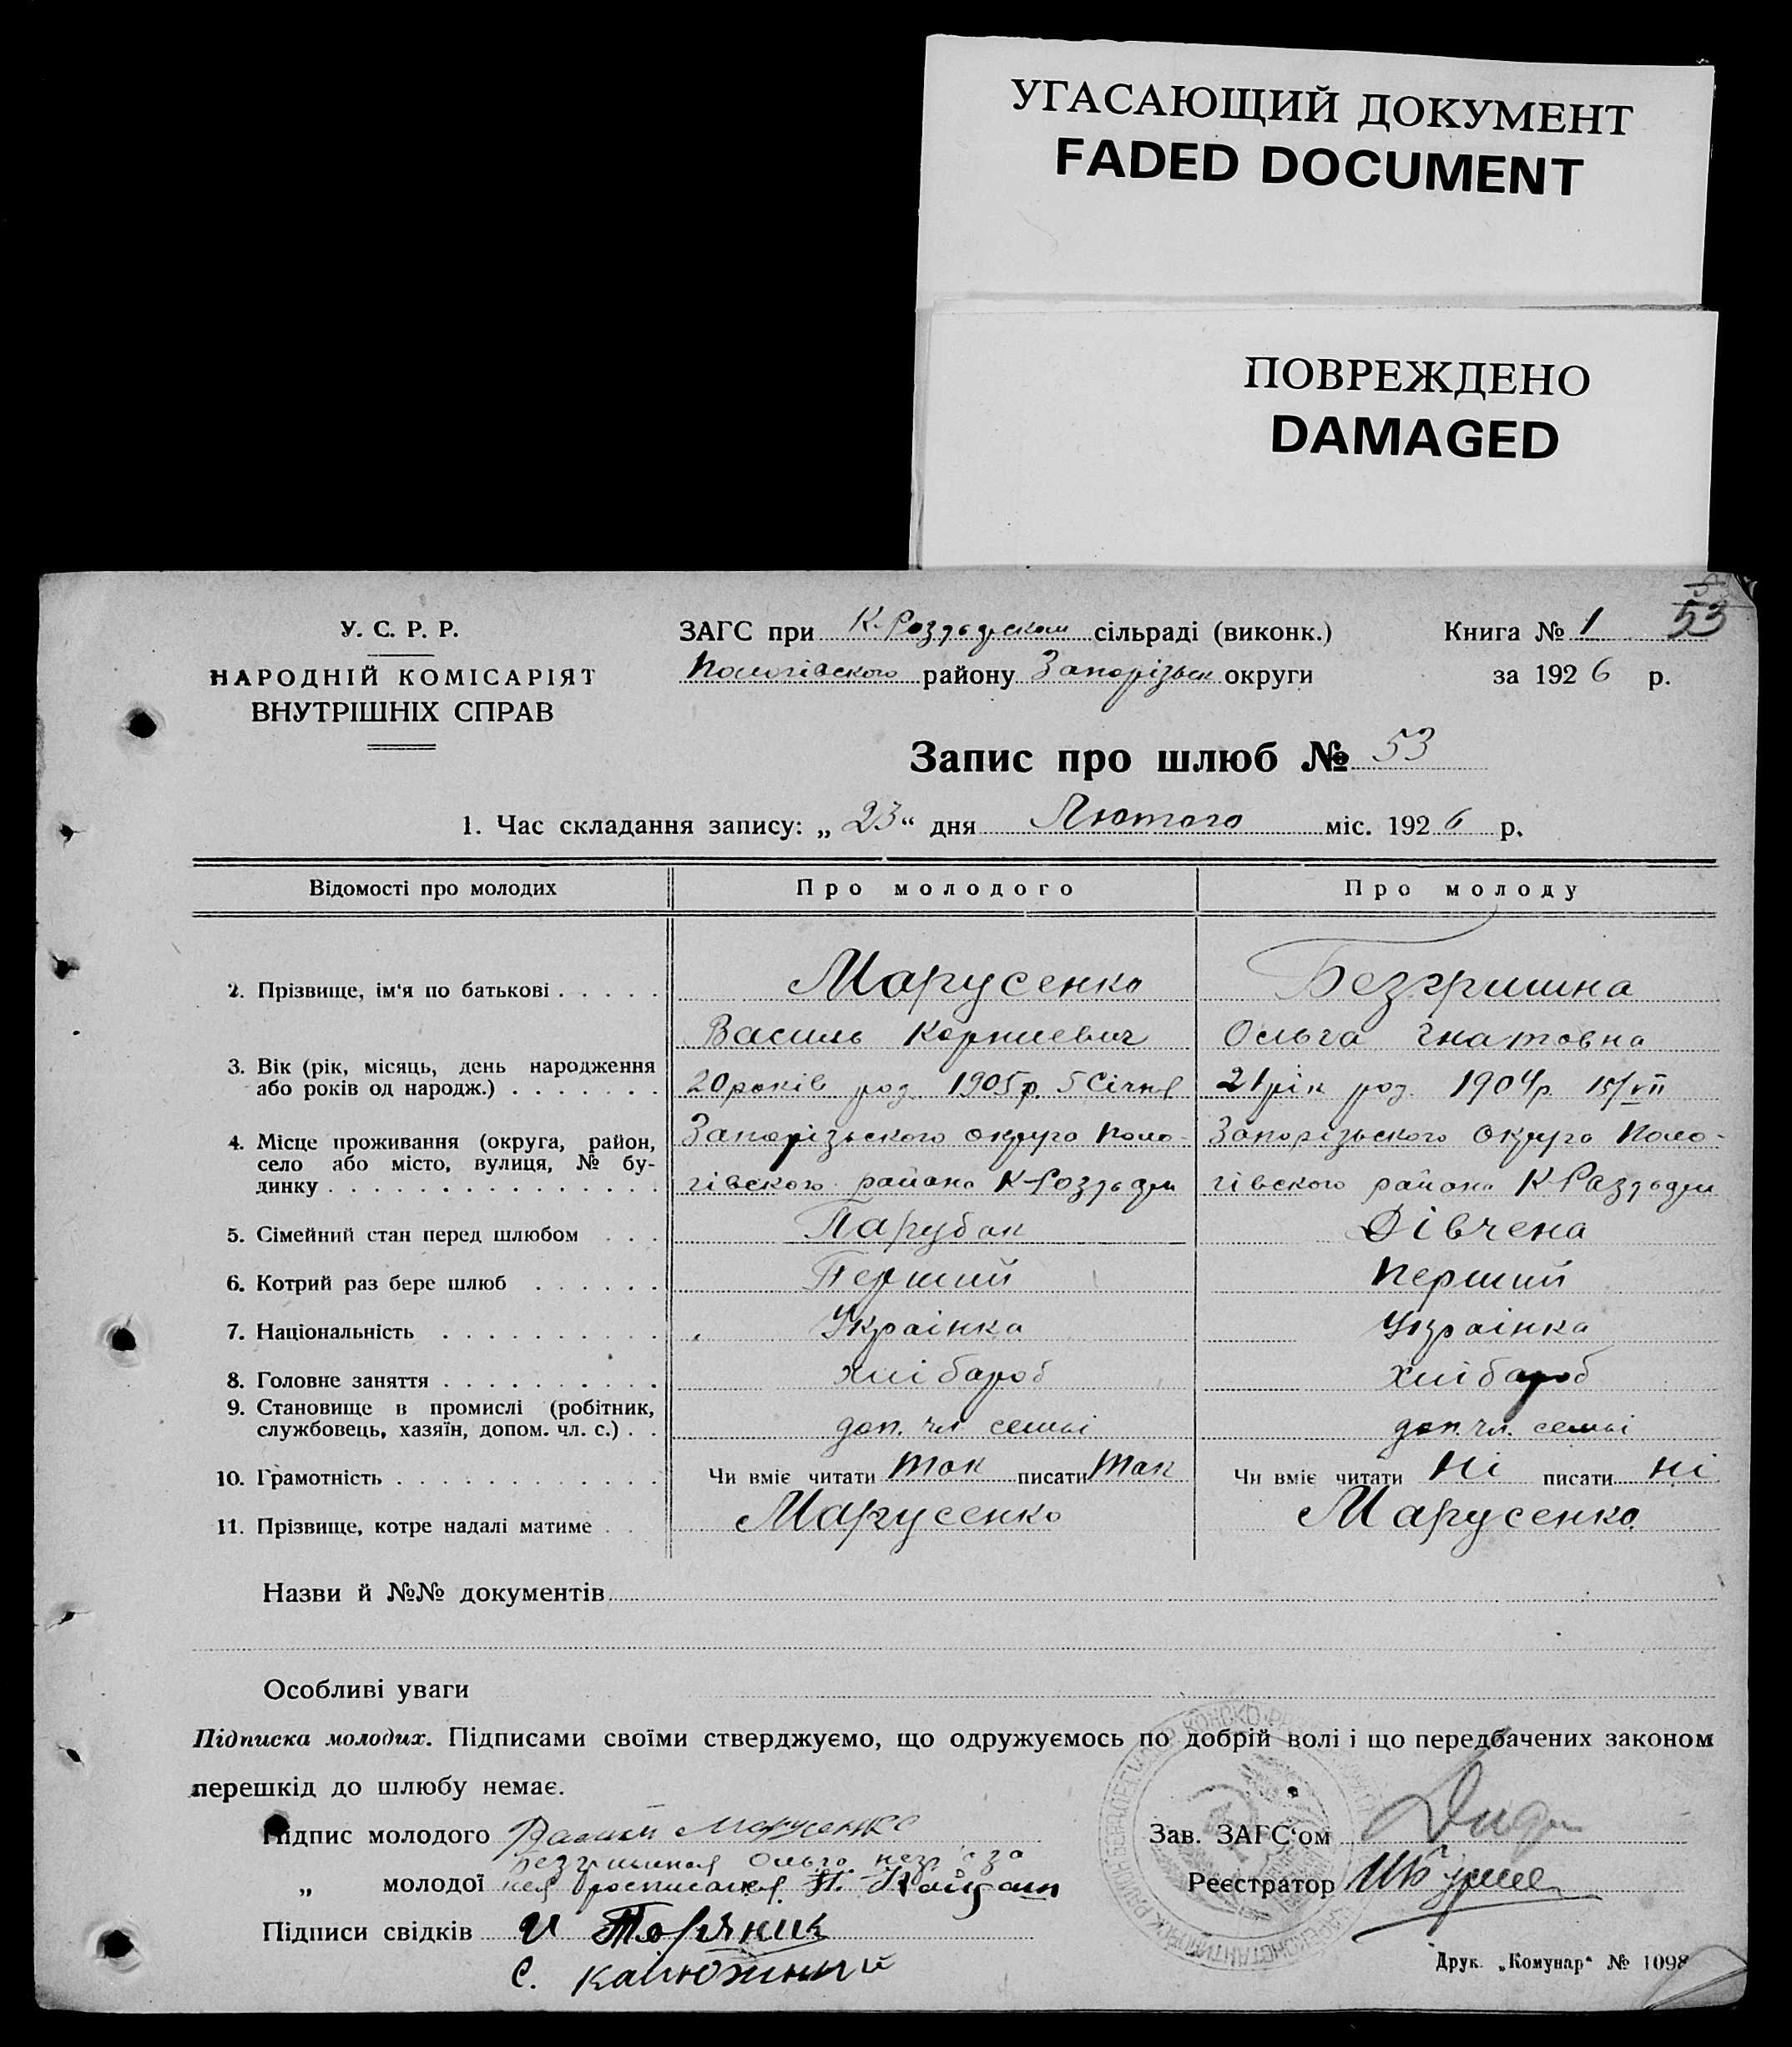 УГАСАЮЩИЙ ДОКУМЕНТ
FADED DOCUMENT
ПОВРЕЖДЕНО
DAMAGED
53
У. С. Р. Р.
НАРОДНІЙ КОМІСАРІЯТ
ВНУТРІШНІХ СПРАВ
ЗАГС при К-Роздорском сільраді (виконк.)
Пологівского району Запорізьк округи
Книга № 1
за 1926 р.
Запис про шлюб № 53
1. Час складання запису: „ 23 “ дня Лютого міс. 1926 р.
Відомості про молодих Про молодого Про молоду
2. Прізвище, ім'я по батькові . . . . . Марусенко Безгришна
Василь Корниевич Ольга Гнатовна
3. Вік (рік, місяць, день народження
або років од народж.) . . . . . . . 20 років род. 1905 р. 5 Січня 21 рік род. 1904 р. 15/VII
4. Місце проживання (округа, район,
село або місто, вулиця, № бу-
динку . . . . . . . . . . . . . . .
Запорізьского округа Поло- Запорізьского округа Поло-
гівского района К-Роздори гівского района К-Раздори
5. Сімейний стан перед шлюбом . . . Парубок Дівчена
6. Котрий раз бере шлюб . . . . . . Перший Перший
7. Національність . . . . . . . . . . Украінка Украінка
8. Головне заняття . . . . . . . . . . хлібароб хлібароб
9. Становище в промислі (робітник,
службовець, хазяїн, допом. чл. с.) . . доп. чл. семьі доп. чл. семьі
10. Грамотність . . . . . . . . . . . . Чи вміє читати так писати так Чи вміє читати ні писати ні
11. Прізвище, котре надалі матиме . . Марусенко Марусенко
Назви й №№ документів
Особливі уваги
Підписка молодих. Підписами своїми стверджуємо, що одружуємось по добрій волі і що передбачених законом
перешкід до шлюбу немає.
Підпис молодого Марусенко
Безгришная Ольга
„ молодої нея росписался
Підписи свідків И Торяник
С. Калюжний
Зав. ЗАГС'ом
Реєстратор
Друк. „Комунар“ № 1098